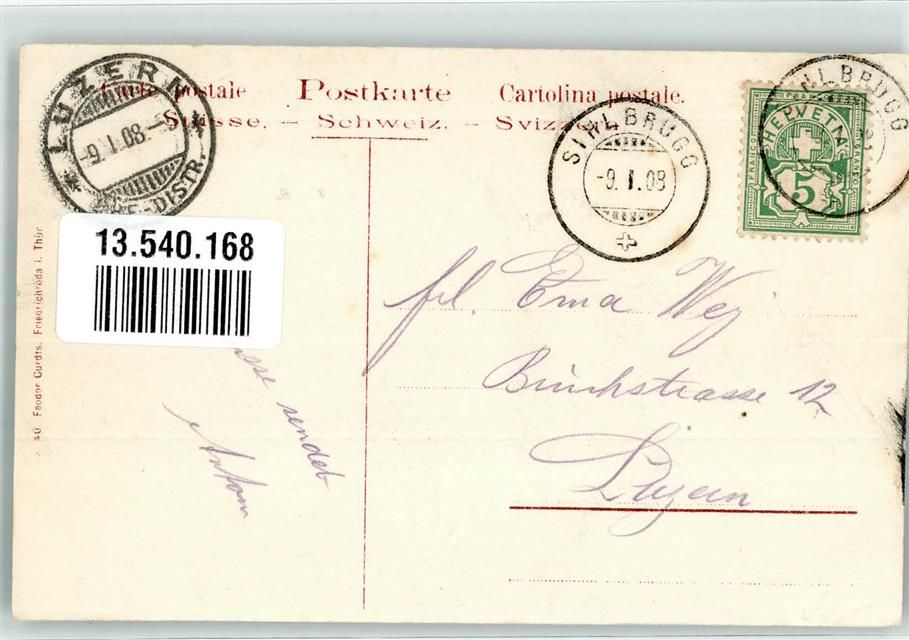 Carte postale Postkarte Cartolina postale.
Suisse. – Schweiz. – Svizzera
LUZERN
-9.I.08.-5
BRF-DISTR.
SIHLBRUGG
-9.I.08
SIHLBRUGG
HELVETIA
5
13.540.168
Feodor Curdts. Friedrichroda i. Thür
sendet
Anton
frl. Erna Wey
Bruchstrasse 12
Luzern